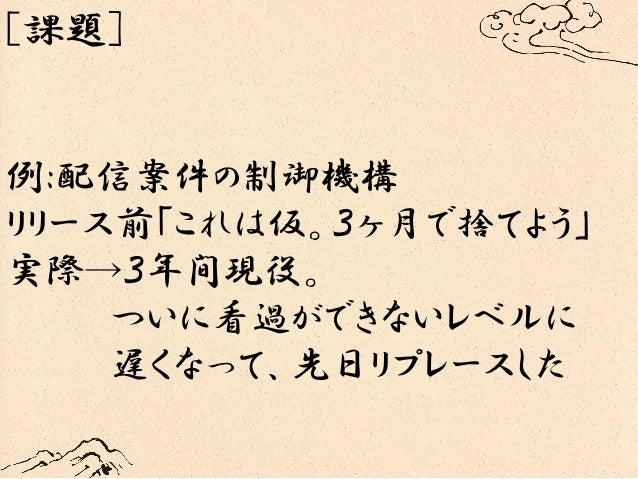 [課題]
例:配信案件の制御機構
リリース前「これは仮。3ヶ月で捨てよう」
実際→3年間現役。
ついに看過ができないレベルに
遅くなって、先日リプレースした